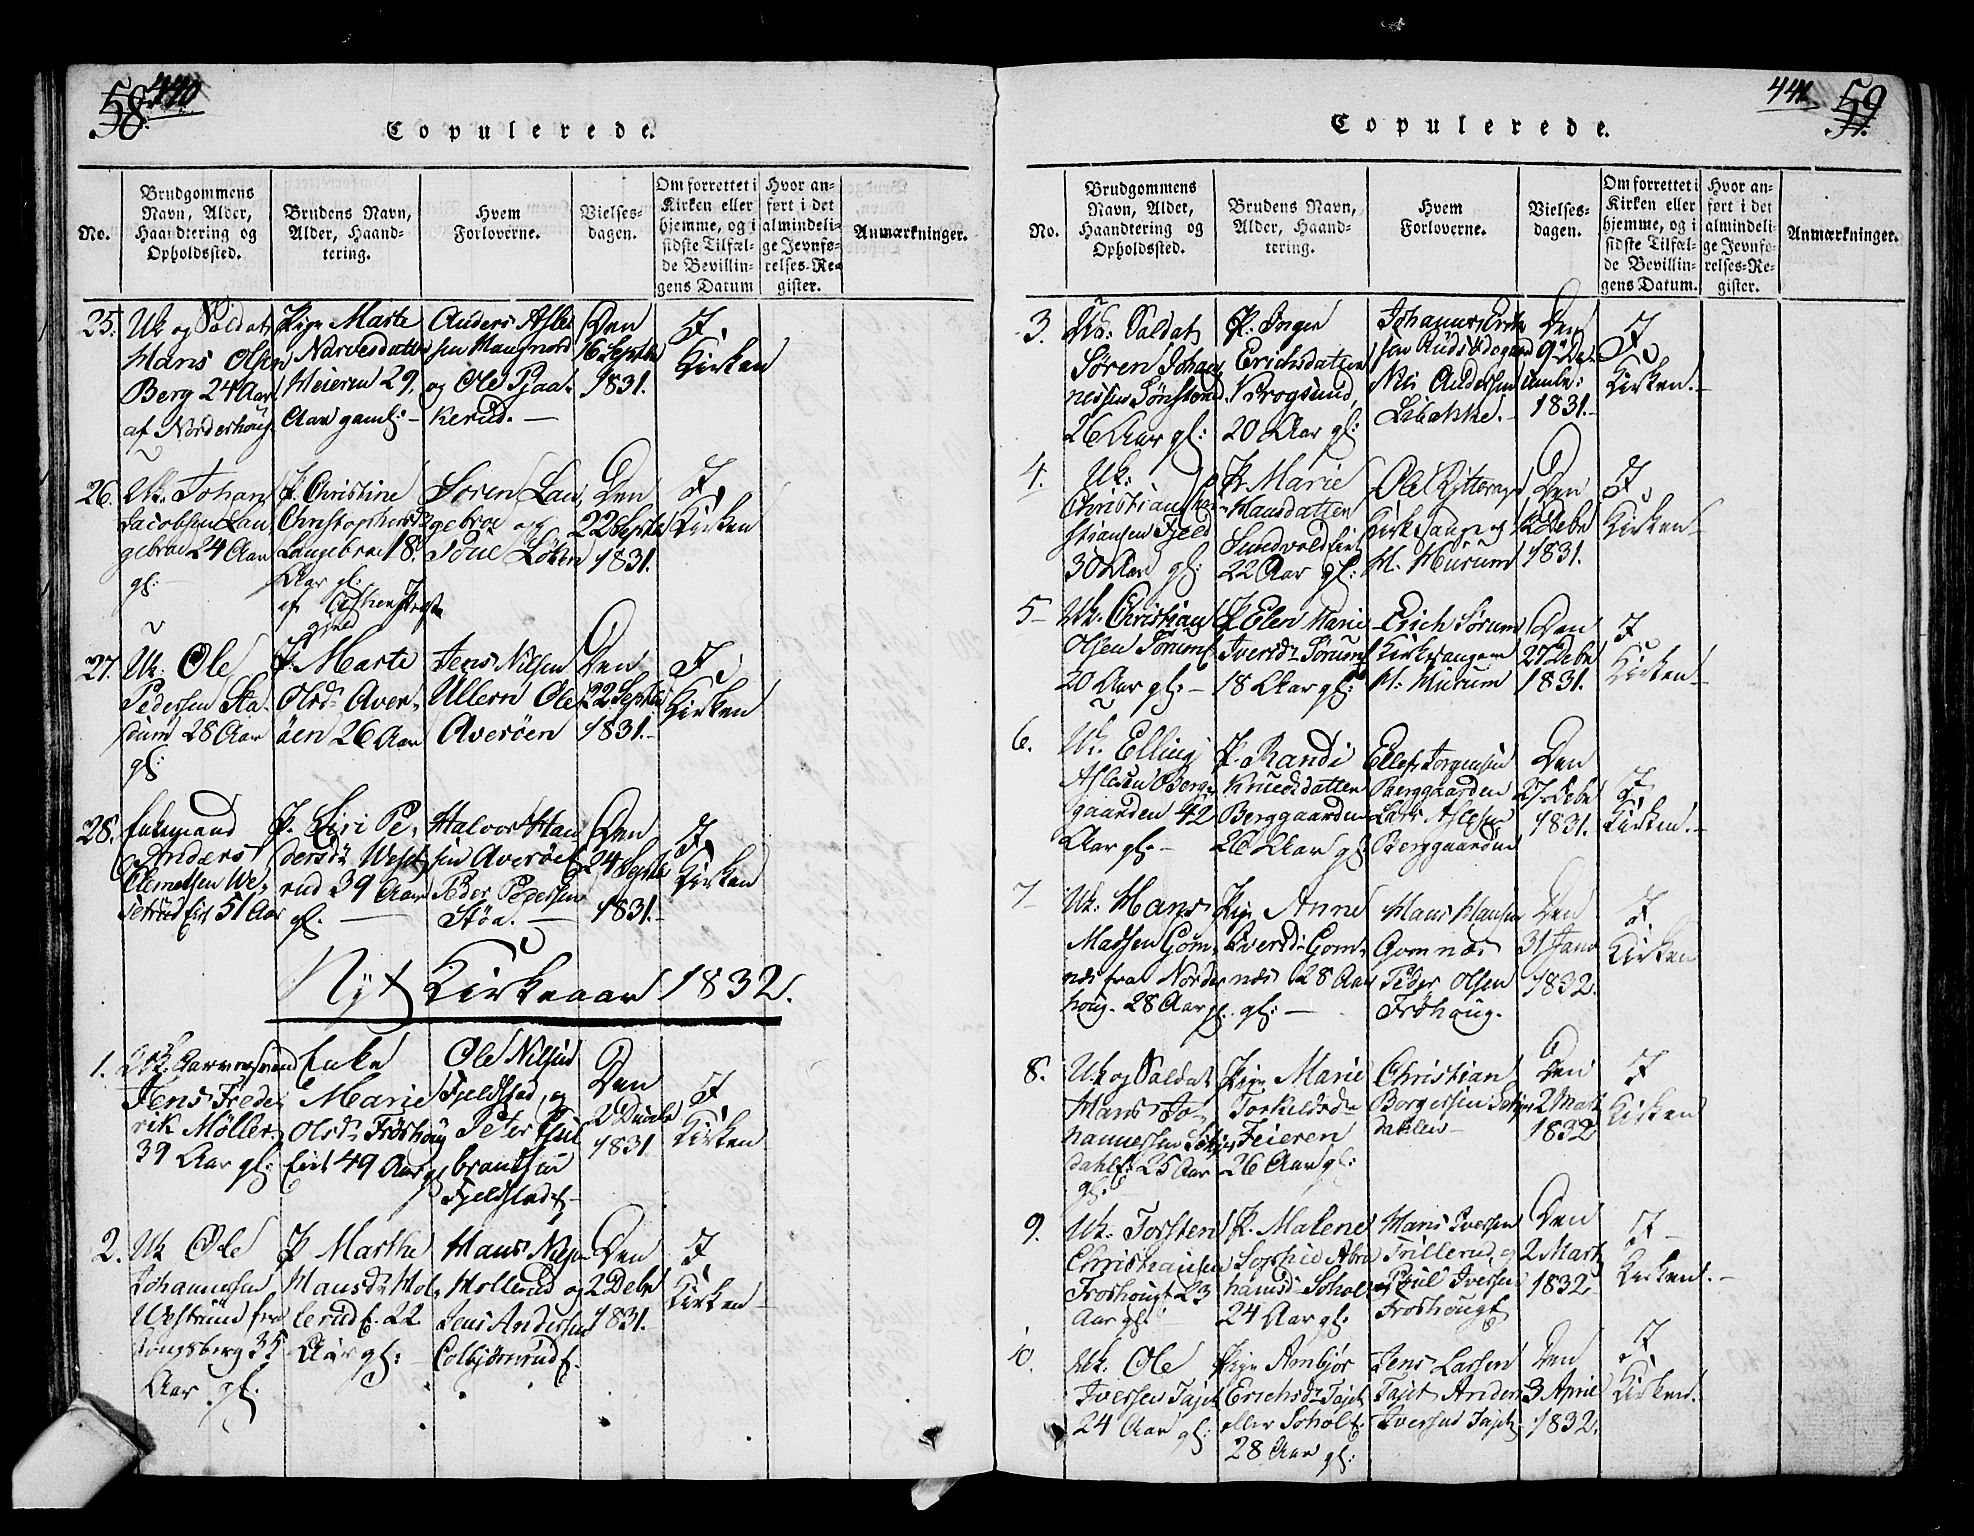 58. 440
Copulerede.
No.
Brudgommens
Navn, Alder,
Haandtering og
Opholdssted.
Brudens Navn,
Alder, Haand-
tering.
Hvem
Forloverne.
Vielses-
dagen.
Om forrettet i
Kirken eller
hjemme, og i
sidste Tilfæl-
de Bevillin-
gens Datum
Hvor an-
ført i det
almindeli-
ge Jevnfø-
relses-Re-
gister.
Anmærkninger.
25.
Uk og Soldat
Hans Olsen
Berg 24 Aar
af Norderhoug
Pige Marte
Narvesdatter
Heieren 29,
Aar gaml.
Anders Asle
sen Haugnord
og Ole Pjaa-
kerud.
Den
16 Septbr
1831.
I
Kirken
26.
Uk. Johan
Jacobsen Lan
gebroe 24 Aar
gl.
P. Christine
Christophersd
Langebroe 18.
Aar gl:
af
gjeld
Søren Lan,
gebroe og
Løken
Den
22 Septbr
1831.
I
Kirken
27.
Uk. Ole
Pedersen Sta-
dum 28 Aar
gl:
P. Marte
Olsd. Aver-
øen 26 Aar
Jens Nilsen
Ullern Ole
Averøen
Den
22 Septbr
1831.
I
Kirken
28.
Enkemand
Anders
Clemetsen We-
setrud Eie 51 Aar
P. Siri Pe-
dersdr Weset
rud 39 Aar
gl.
Halvor Han
sen Averøe
Peder Pedersen
Støa.
Den
24 Septbr
1831.
I
Kirken
Nyt Kirkeaar 1832.
1.
Jens Frede
rik Møller
39 Aar gl:
Enke
Marie
Olsdr Frøshoug
Eie 49 Aar gl
Ole Nilsen
Fjeldstad, og
Peter Gul
brandsen
Fjeldstad
Den
2 Decbr
1831
I
Kirken
2.
Uk Ole
Johannesen
Westrum fra
Kongsberg 35
Aar gl.
P Marthe
Hansdr Mol-
lerud E. 22
Aar gl:
Hans
Mollerud og
Jens Andersen
Colbjørnrud E.
Den
2 Debr
1831.
I
Kirken
441 59.
Copulerede.
No.
Brudgommens
Navn, Alder,
Haandtering og
Opholdssted.
Brudens Navn,
Alder, Haand-
tering.
Hvem
Forloverne.
Vielses-
dagen.
Om forrettet i
Kirken eller
hjemme, og i
sidste Tilfæl-
de Bevillin-
gens Datum.
Hvor an-
ført i det
almindeli-
ge Jevnfø-
relses-Re-
gister.
Anmærkninger.
3.
Uk: Soldat
Søren Johan
nessen Sønsterud
26 Aar gl:
P: Inger
Erichsdatter
Krogsund,
20 Aar gl:
Johannes Erik
sen
Nils Andersen
Libakke.
Den
9de De-
cembr:
1831.
I
Kirken.
4.
Uk:
Christian Kri-
stiansen Fjeld
30 Aar gl:
P. Marie
Hansdatter
Sundvold Eie
22 Aar gl:
Ole
Kirkesanger
H. Murum
Den
Debr
1831.
I
Kirken
5
Uk. Christian
Olsen Sørum
20 Aar gl:
P Elen Marie
Iversdr Sørum
18 Aar gl:
Erich Sørum
Kirkesanger
H. Murum
Den
27 Debr
1831.
I
Kirken
6.
Uk. Elling
Aslesen Berg-
gaarden 42
Aar gl:
P. Randi
Knudsdatter
Berggaarden
26 Aar gl
Ellef Jorgensen
Berggaarden
Lars Aslesen
Berggaarden
Den
27 Debr
1831.
I
Kirken.
7
Uk. Hans
Madsen Gom-
næs fra Norder
houg. 28 Aar gl.
Pige Anne
Iversd: Gom-
næs 28 Aar
gl:
Hans Hansen
Gomnæs
Peder Olsen
Frøhoug.
Den
31 Janu
1832.
I
Kirken
8.
Uk og Soldat
Hans Jo-
hannessen
dahl E. 25 Aar
gl:
Pige Marie
Torkeldsdr
Feieren
26 Aar gl:
Christian
Borgersen
dahlen
Den
2 Marti
1832
I
Kirken
9.
Uk. Torsten
Christiansen
Froshougt 23
Aar gl:
P. Malene
Sophie Abra
hamsdr Sohol
24 Aar gl.
Hans Iversen
Trillerud, og
Poul Iversen
Froshougt
Den
2 Marti
1832.
I
Kirken.
10.
Uk. Ole
Iversen Tajet
24 Aar gl:
Pige Ambjør
Erichsdr Tajet
eller Soholt
28 Aar gl:
Jens Larsen
Tajet Anders
Iversen Tajet
Den
3 April
1832.
I
Kirken.